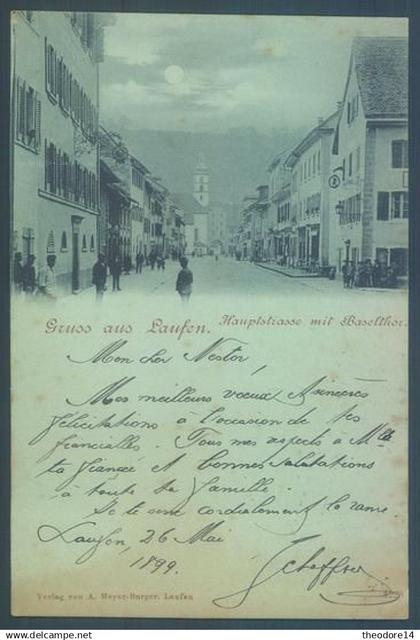 Gruss aus Laufen. Hauptstrasse mit Baselthor.
Mon cher Nestor,
Mes meilleurs voeux & sincères
félicitations à l'occasion de tes
fiancialles. Tous mes aspects à Mlle
ta fiancée et bonnes salutations
à toute ta famille.
Je te serre cordialement la
Laufen, 26 Mai
1899.
Verlag von A. Meyer-Burger, Laufen
theodore14